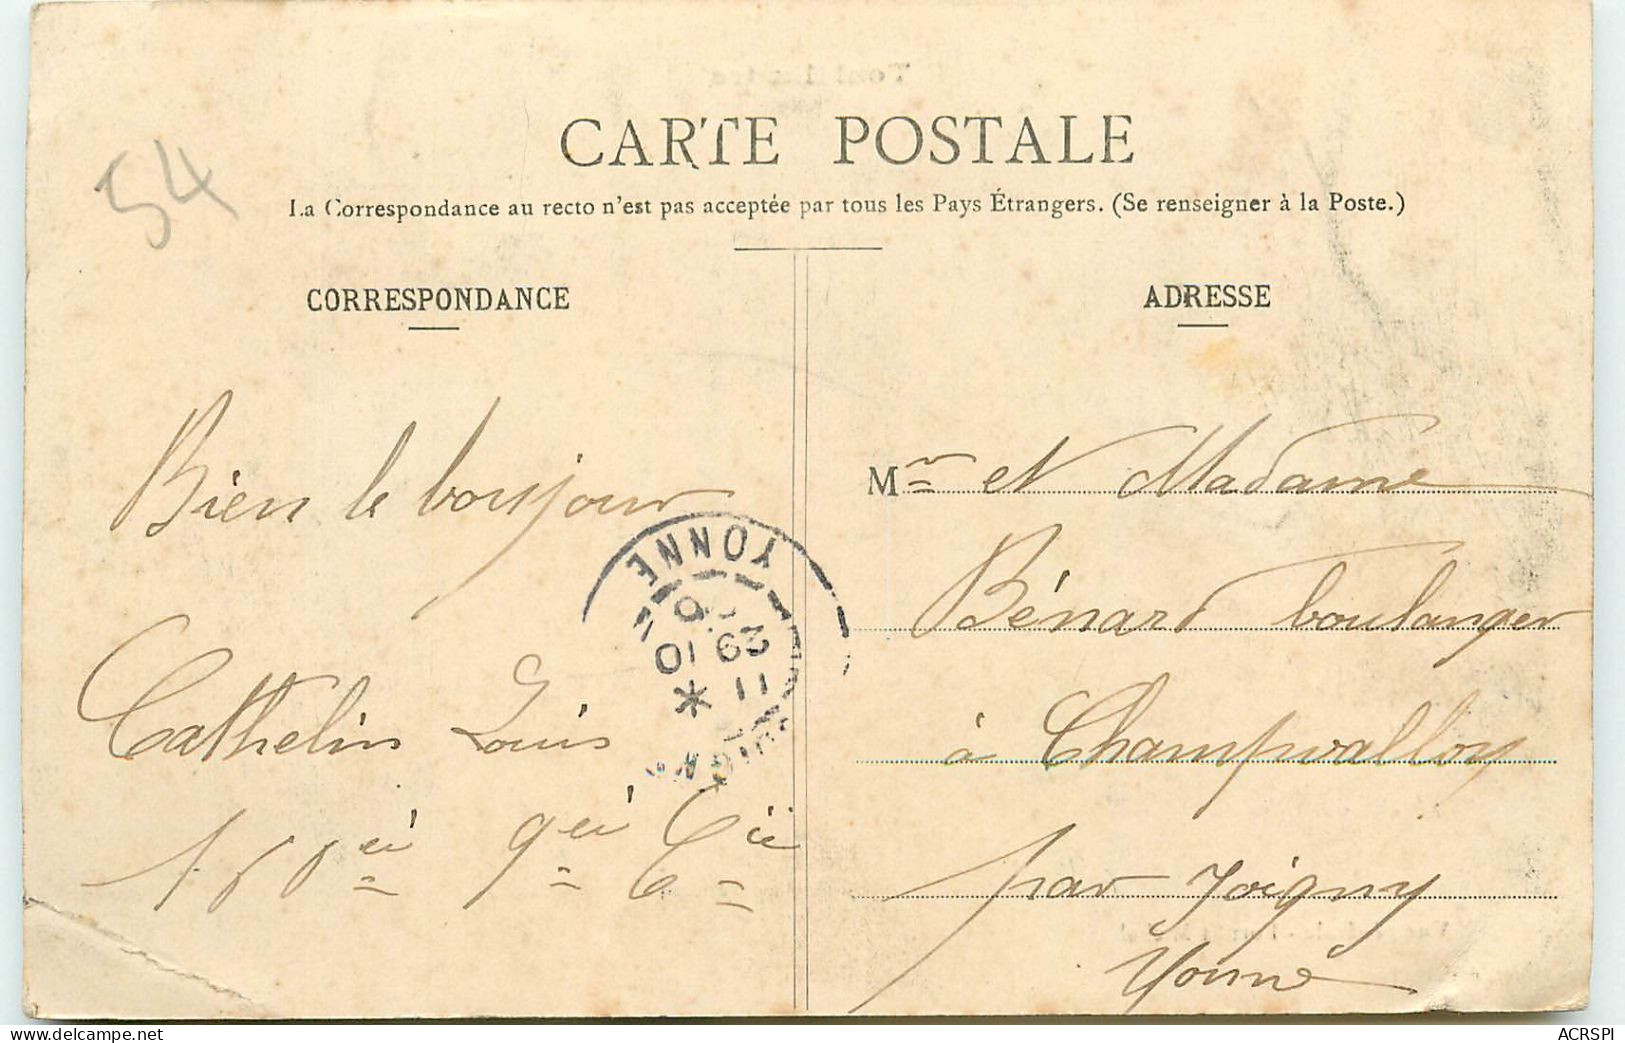 CARTE POSTALE
La Correspondance au recto n'est pas acceptée par tous les Pays Étrangers. (Se renseigner à la Poste.)
54
CORRESPONDANCE
Bien le bonjour
Cathelin Louis
9eù Cie
YONNE
29 10
11 *
ADRESSE
Mr et Madame
Bénard boulanger
à Champvallon
par Joigny
Yonne
ACRSPI